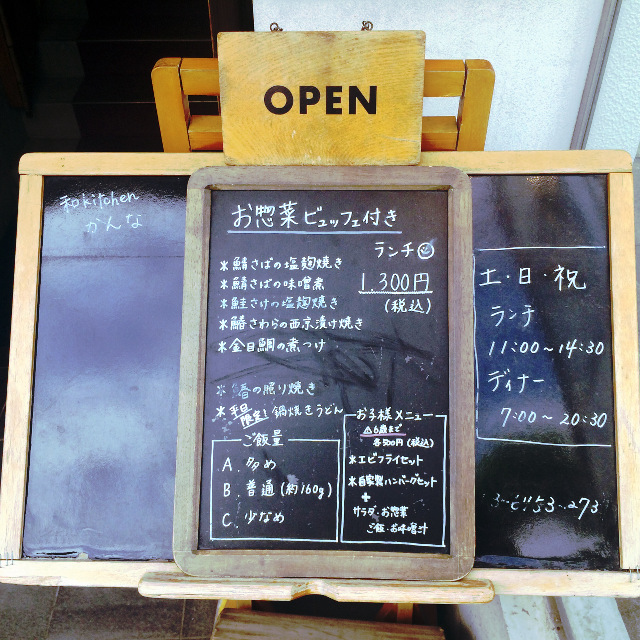 OPEN
和kitchen
かんな
お惣菜ビュッフェ付き
ランチ
＊鯖さばの塩麹焼き
＊鯖さばの味噌煮
＊鮭さけの塩麹焼き
＊鰆さわらの西京漬け焼き
＊金目鯛の煮つけ
1.300円
(税込)
の照り焼き
＊平日限定！鍋焼きうどん
ご飯量
A 多め
B 普通(約160g)
C 少なめ
お子様メニュー
⚠6歳まで
各500円(税込)
＊エビフライセット
＊自家製ハンバーグセット
+
サラダ・お惣菜
ご飯・お味噌汁
土・日・祝
ランチ
11:00～14:30
ディナー
7:00～20:30